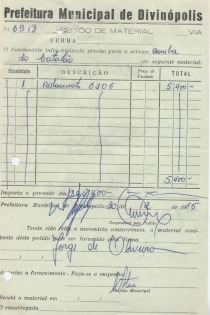 Prefeitura Municipal de Divinópolis
N.6913 PEDIDO DE MATERIAL VIA
VERBA
O funcionário infra-assinado precisa para o serviço Bomba
do Catalão do seguinte material:
Quantidade DESCRIÇÃO Preço da Unidade TOTAL
1 Rolamento 6306 5,400-
5,400-
Importa o presente em
Prefeitura Municipal de Divinópolis, 30 de 12 de
Tendo sido feita a necessária concorrência, o material constante
dêste pedido pode ser fornecido por
Jorge de Oliveira
Autorizo o fornecimento - Faça-se o empenho
Prefeito Municipal
Recebi o material em
O encarregado,